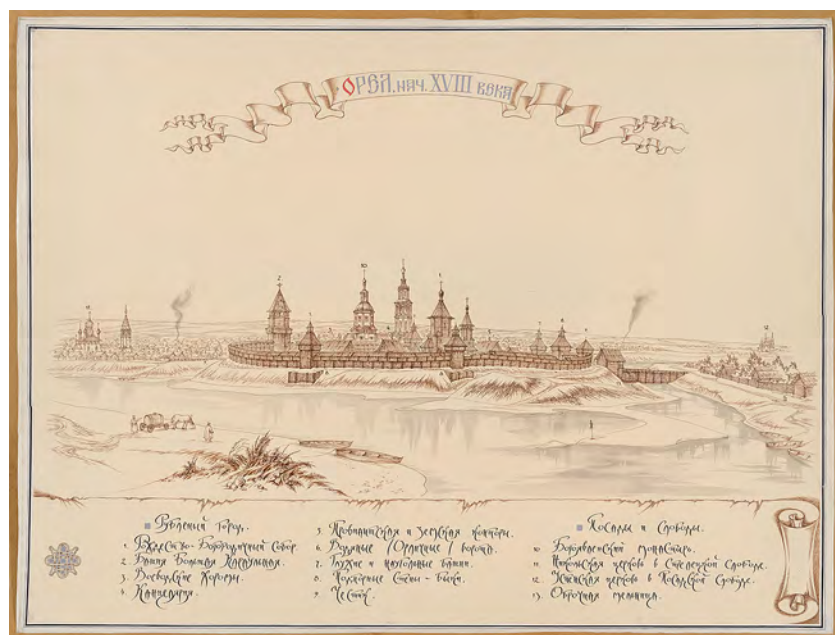 ОРЕЛ, нач. XVIII века
Рубленый город:
1. Рождество-Богородичный Собор
2. Башня Большая Караульная.
3. Воеводские Хоромы.
4. Канцелярия.
5. Провиантская и земская конторы.
6. ворота.
7. Глухие и наугольные башни.
8. Стены - Быки.
9.
Посады и Слободы.
10. Богоявленский монастырь.
11. Никольская церковь в Стрелецкой Слободе.
12. церковь в Посадской Слободе.
13. Оброчная мельница.